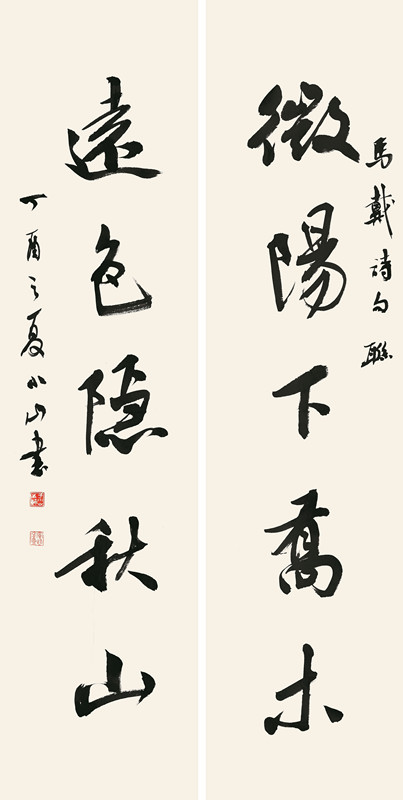 馬戴诗句聯
微陽下喬木
遠色隐秋山
丁酉之夏小山書